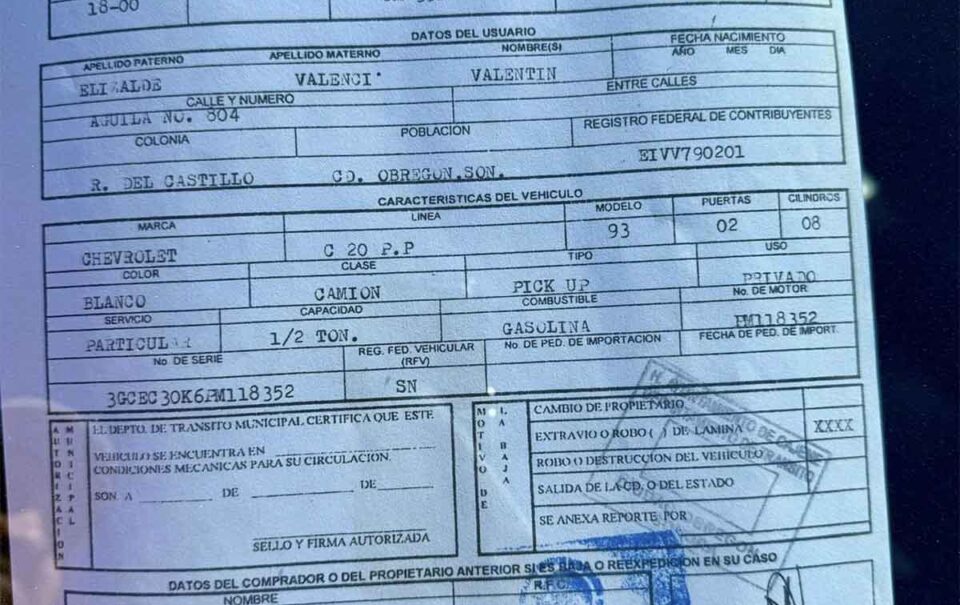 18-00
DATOS DEL USUARIO
APELLIDO PATERNO APELLIDO MATERNO NOMBRE(S) FECHA NACIMIENTO
AÑO MES DIA
ELIZALDE VALENCI VALENTIN
CALLE Y NUMERO ENTRE CALLES
AGUILA NO. 804
COLONIA POBLACION REGISTRO FEDERAL DE CONTRIBUYENTES
R. DEL CASTILLO CD. OBREGON.SON. EIVV790201
CARACTERISTICAS DEL VEHICULO
MARCA LINEA MODELO PUERTAS CILINDROS
CHEVROLET C 20 P.P 93 02 08
COLOR CLASE TIPO USO
BLANCO CAMION PICK UP PRIVADO
SERVICIO CAPACIDAD COMBUSTIBLE No. DE MOTOR
PARTICULAR 1/2 TON. GASOLINA PM118352
No. DE SERIE REG. FED. VEHICULAR (RFV) No. DE PED. DE IMPORTACION FECHA DE PED. DE IMPORT.
3GCEC30K6PM118352 SN
AUTORIZACION MUNICIPAL
EL DEPTO. DE TRANSITO MUNICIPAL CERTIFICA QUE ESTE
VEHICULO SE ENCUENTRA EN
CONDICIONES MECANICAS PARA SU CIRCULACION.
SON. A DE DE
SELLO Y FIRMA AUTORIZADA
MOTIVO DE LA BAJA
CAMBIO DE PROPIETARIO
EXTRAVIO O ROBO ( ) DE LAMINA XXXX
ROBO O DESTRUCCION DEL VEHICULO
SALIDA DE LA CD. O DEL ESTADO
SE ANEXA REPORTE POR
H. AYUNTAMIENTO DE CAJEME
CIUDAD OBREGON
DATOS DEL COMPRADOR O DEL PROPIETARIO ANTERIOR SI ES BAJA O REEXPEDICION EN SU CASO
NOMBRE R.F.C.